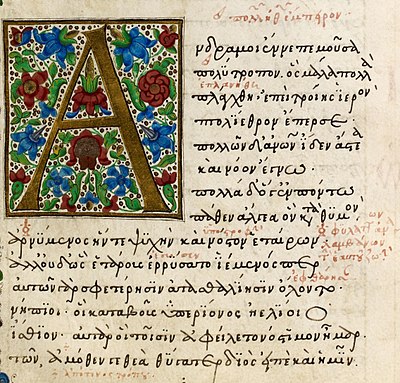 Ἄνδρα μοι ἔννεπε μοῦσα
πολύτροπον. ὃς μάλα πολλὰ
ἐπλανήθη
πλάγχθη· ἐπεὶ τροίης ἱερὸν
πτολίεθρον ἔπερσε·
πολλῶν δ' ἀνων ἴδεν ἄστεα
καὶ νόον ἔγνω·
πολλὰ δ' ὅγ' ἐν πόντω
πάθεν ἄλγεα ὃν κατὰ θυμὸν·
ἀρνύμενος ἥν τε ψυχὴν καὶ νόστον ἑταίρων
ἀλλ' οὐδ' ὣς ἑτάρους ἐρρύσατο ἱέμενός περ
αὐτῶν γὰρ σφετέρησιν ἀτασθαλίησιν ὄλοντο·
νήπιοι· οἳ κατὰ βοῦς ὑπερίονος ἠελίοιο
ἤσθιον· αὐτὰρ ὁ τοῖσιν ἀφείλετο νόστιμον ἦμαρ·
τῶν ἁμόθεν γε θεὰ θύγατερ διὸς εἰπὲ καὶ ἡμῖν.